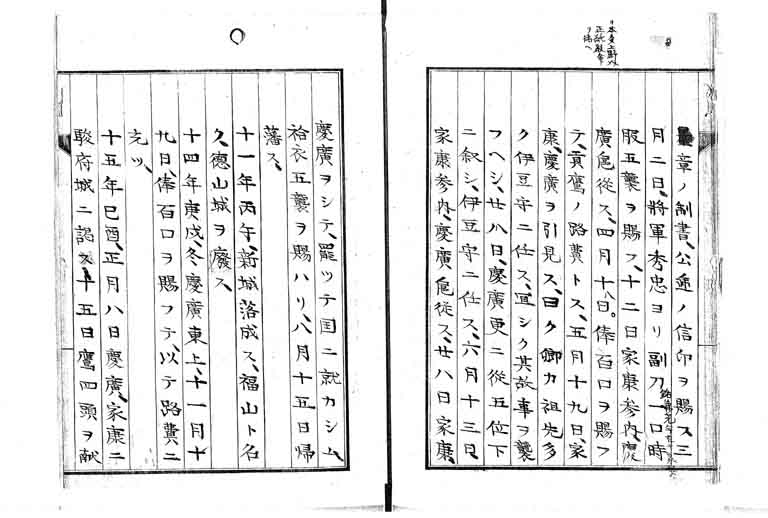 章ノ制書、公逓ノ信印ヲ賜ス三
月二日、將軍秀忠ヨリ副刀一口時
服五襲ヲ賜フ、十二日家康参内、慶
廣扈從ス、四月十八日。俸百口ヲ賜フ
テ、貢鷹ノ路費トス、五月十九日、家
康、慶廣ヲ引見ス、曰ク卿カ祖先多
ク伊豆守ニ任ス、宜シク其故事ヲ襲
フヘシ、廿八日、慶廣更ニ從五位下
ニ叙シ、伊豆守ニ任ス、六月十三日、
家康参内、慶廣扈從ス、廿八日家康、
慶廣ヲシテ、罷ツテ国ニ就カシム、
袷衣五襲ヲ賜ハリ、八月十五日帰
藩ス、
十一年丙午、新城落成ス、福山ト名
ク、德山城ヲ廢ス、
十四年庚戍、冬慶廣東上、十一月十
九日、俸百口ヲ賜フテ、以テ路費ニ
充ツ、
十五年巳酉、正月八日慶廣、家康ニ
駿府城ニ認ス、十五日鷹四頭ヲ献